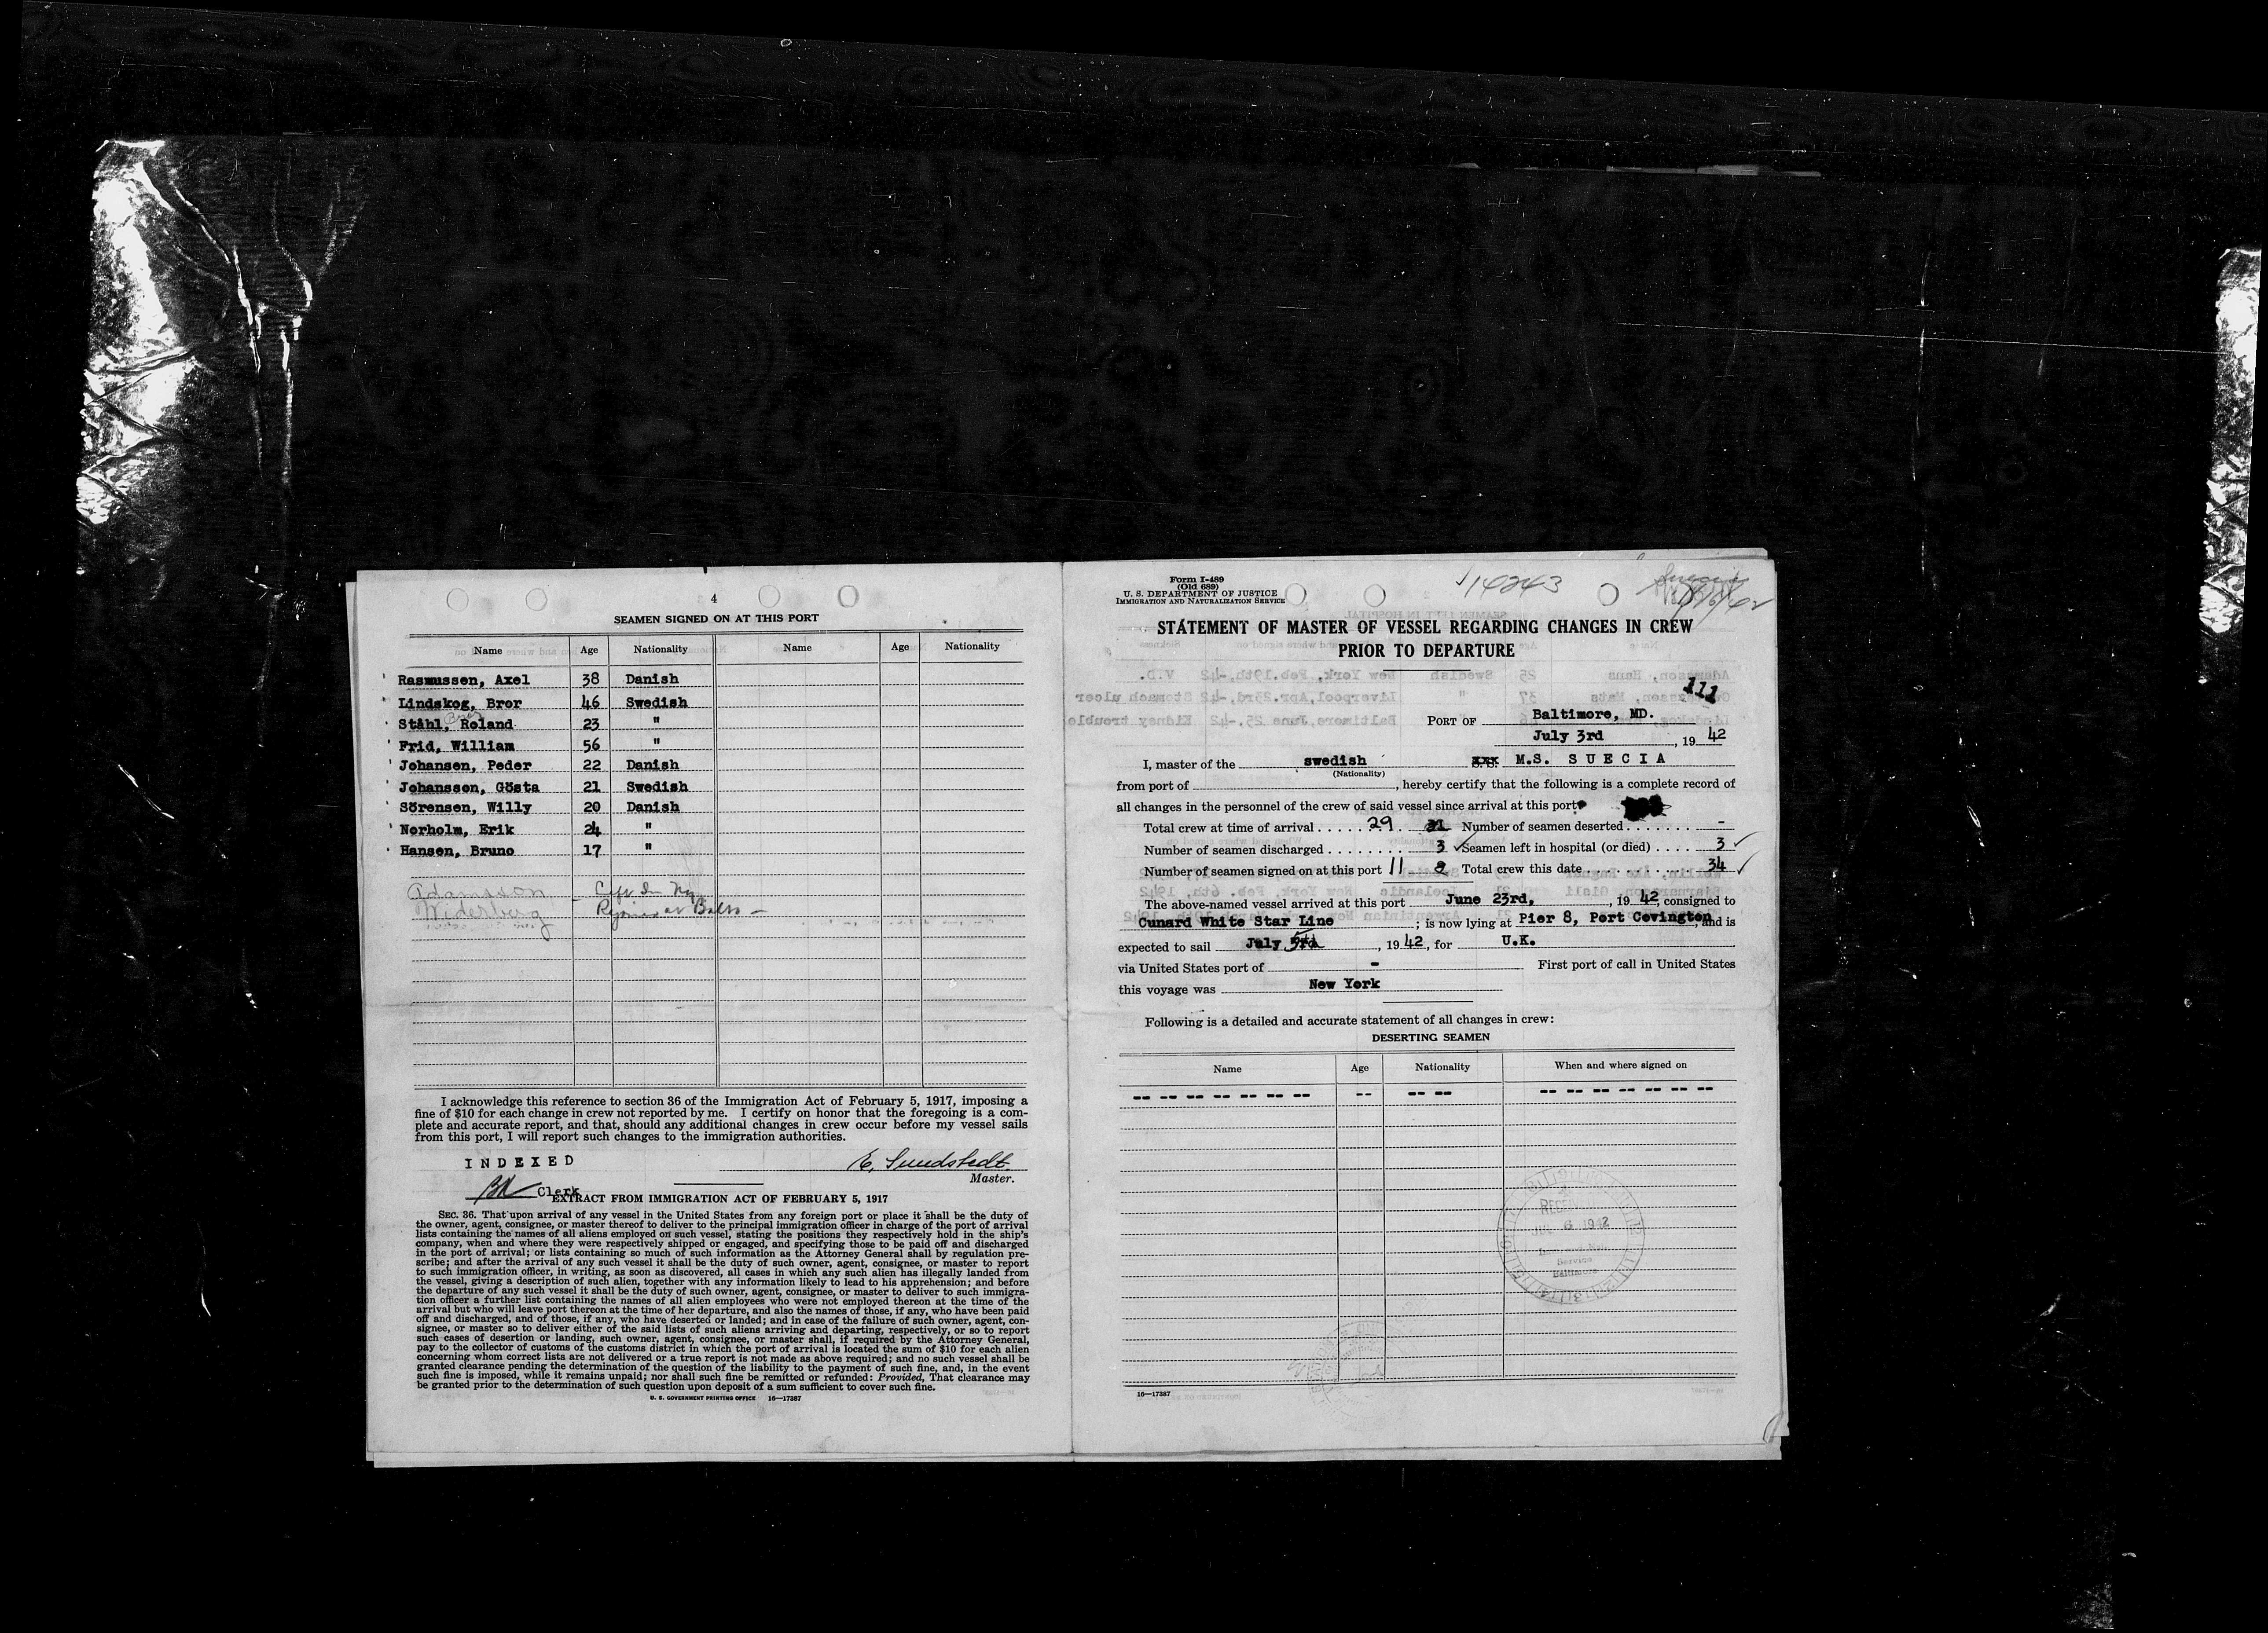 4
SEAMEN SIGNED ON AT THIS PORT
Name Age Nationality Name Age Nationality
Rasmussen, Axel 38 Danish
Lindskog, Bror 46 Swedish
Ståhl, Roland 23 "
Frid, William 56 "
Johansen, Peder 22 Danish
Johansson, Gösta 21 Swedish
Sörensen, Willy 20 Danish
Norholm, Erik 24 "
Hansen, Bruno 17 "
Adamsson - Left In Ny
Widerberg - Rejoined at Balto -
I acknowledge this reference to section 36 of the Immigration Act of February 5, 1917, imposing a
fine of $10 for each change in crew not reported by me. I certify on honor that the foregoing is a com-
plete and accurate report, and that, should any additional changes in crew occur before my vessel sails
from this port, I will report such changes to the immigration authorities.
INDEXED
E. Sundstedt
Master.
Clerk
EXTRACT FROM IMMIGRATION ACT OF FEBRUARY 5, 1917
SEC. 36. That upon arrival of any vessel in the United States from any foreign port or place it shall be the duty of
the owner, agent, consignee, or master thereof to deliver to the principal immigration officer in charge of the port of arrival
lists containing the names of all aliens employed on such vessel, stating the positions they respectively hold in the ship's
company, when and where they were respectively shipped or engaged, and specifying those to be paid off and discharged
in the port of arrival; or lists containing so much of such information as the Attorney General shall by regulation pre-
scribe; and after the arrival of any such vessel it shall be the duty of such owner, agent, consignee, or master to report
to such immigration officer, in writing, as soon as discovered, all cases in which any such alien has illegally landed from
the vessel, giving a description of such alien, together with any information likely to lead to his apprehension; and before
the departure of any such vessel it shall be the duty of such owner, agent, consignee, or master to deliver to such immigra-
tion officer a further list containing the names of all alien employees who were not employed thereon at the time of the
arrival but who will leave port thereon at the time of her departure, and also the names of those, if any, who have been paid
off and discharged, and of those, if any, who have deserted or landed; and in case of the failure of such owner, agent, con-
signee, or master so to deliver either of the said lists of such aliens arriving and departing, respectively, or so to report
such cases of desertion or landing, such owner, agent, consignee, or master shall, if required by the Attorney General,
pay to the collector of customs of the customs district in which the port of arrival is located the sum of $10 for each alien
concerning whom correct lists are not delivered or a true report is not made as above required; and no such vessel shall be
granted clearance pending the determination of the question of the liability to the payment of such fine, and, in the event
such fine is imposed, while it remains unpaid; nor shall such fine be remitted or refunded: Provided, That clearance may
be granted prior to the determination of such question upon deposit of a sum sufficient to cover such fine.
U. S. GOVERNMENT PRINTING OFFICE 16—17387
Form I-489
(Old 689)
U. S. DEPARTMENT OF JUSTICE
IMMIGRATION AND NATURALIZATION SERVICE
14243
STATEMENT OF MASTER OF VESSEL REGARDING CHANGES IN CREW
PRIOR TO DEPARTURE
111
PORT OF Baltimore, MD.
July 3rd, 19 42
I, master of the swedish M.S. SUECIA
(Nationality)
from port of , hereby certify that the following is a complete record of
all changes in the personnel of the crew of said vessel since arrival at this port
Total crew at time of arrival 29 31 Number of seamen deserted -
Number of seamen discharged 3 Seamen left in hospital (or died) 3
Number of seamen signed on at this port 11 Total crew this date 34
The above-named vessel arrived at this port June 23rd, , 19 42, consigned to
Cunard White Star Line ; is now lying at Pier 8, Port Covington, and is
expected to sail July 5th, 19 42, for U.K.
via United States port of - First port of call in United States
this voyage was New York
Following is a detailed and accurate statement of all changes in crew:
DESERTING SEAMEN
Name Age Nationality When and where signed on
-- -- -- -- -- -- -- -- -- -- -- -- -- -- -- -- --
6 1942
Service
Baltimore
16—17387